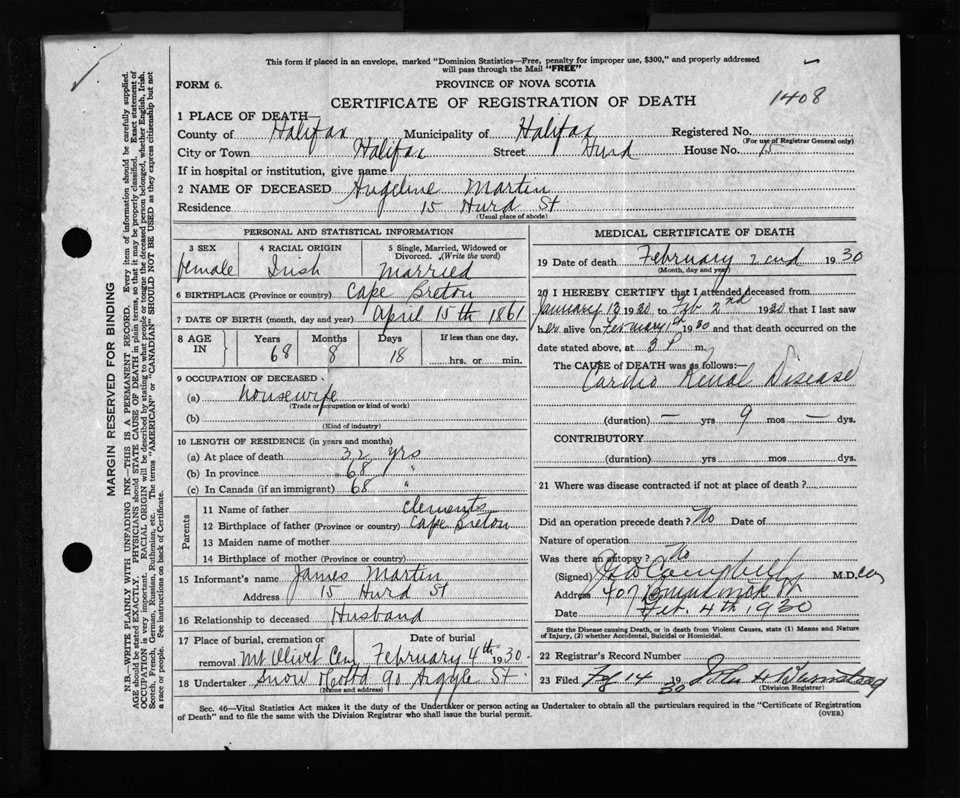 This form if placed in an envelope, marked "Dominion Statistics—Free, penalty for improper use, $300," and properly addressed
will pass through the Mail "FREE"
FORM 6.
PROVINCE OF NOVA SCOTIA
CERTIFICATE OF REGISTRATION OF DEATH
1408
1 PLACE OF DEATH—
County of Halifax Municipality of Halifax Registered No.
(For use of Registrar General only)
City or Town Halifax Street Hurd House No. 15
If in hospital or institution, give name
2 NAME OF DECEASED Angeline Martin
Residence 15 Hurd St
(Usual place of abode)
PERSONAL AND STATISTICAL INFORMATION
3 SEX 4 RACIAL ORIGIN 5 Single, Married, Widowed or
Divorced. (Write the word)
female Irish Married
6 BIRTHPLACE (Province or country) Cape Breton
7 DATE OF BIRTH (month, day and year) April 15th 1861
8 AGE IN Years 68 Months 8 Days 18 If less than one day,
hrs. or min.
9 OCCUPATION OF DECEASED
(a) housewife
(Trade or occupation or kind of work)
(b)
(Kind of industry)
10 LENGTH OF RESIDENCE (in years and months)
(a) At place of death 32 yrs
(b) In province 68 "
(c) In Canada (if an immigrant) 68 "
Parents
11 Name of father Clements
12 Birthplace of father (Province or country) Cape Breton
13 Maiden name of mother
14 Birthplace of mother (Province or country)
15 Informant's name James Martin
Address 15 Hurd St
16 Relationship to deceased Husband
17 Place of burial, cremation or Date of burial
removal Mt Olivet Cem February 4th 1930
18 Undertaker Snow & Co Ltd 90 Argyle St
(Name and address)
MEDICAL CERTIFICATE OF DEATH
19 Date of death February 2nd 1930
(Month, day and year)
20 I HEREBY CERTIFY that I attended deceased from
January 13 1930 to Feb 2nd 1930 that I last saw
her alive on February 1st 1930 and that death occurred on the
date stated above, at 3 P m.
The CAUSE of DEATH was as follows:—
Cardio Renal Disease
(duration) — yrs 9 mos — dys.
CONTRIBUTORY
(duration) yrs mos dys.
21 Where was disease contracted if not at place of death?
Did an operation precede death? No Date of
Nature of operation
Was there an autopsy? No
(Signed) Campbell M.D.
Address 407 Brunswick St
Date Feb. 4th, 1930
State the Disease causing Death, or in death from Violent Causes, state (1) Means and Nature
of Injury, (2) whether Accidental, Suicidal or Homicidal.
22 Registrar's Record Number
23 Filed Feb 14 1930 John H
(Division Registrar)
Sec. 46—Vital Statistics Act makes it the duty of the Undertaker or person acting as Undertaker to obtain all the particulars required in the "Certificate of Registration
of Death" and to file the same with the Division Registrar who shall issue the burial permit.
(OVER)
MARGIN RESERVED FOR BINDING
N.B.—WRITE PLAINLY WITH UNFADING INK—THIS IS A PERMANENT RECORD. Every item of information should be carefully supplied.
AGE should be stated EXACTLY. PHYSICIANS should STATE CAUSE OF DEATH in plain terms, so that it may be properly classified. Exact statement of
OCCUPATION is very important. RACIAL ORIGIN will be described by stating to what people or tongue the deceased person belonged, whether English, Irish,
Scotch, French, German, Russian, Ruthenian, etc. The terms "AMERICAN" or "CANADIAN" SHOULD NOT BE USED as they express citizenship but not
a race or people. See instructions on back of Certificate.